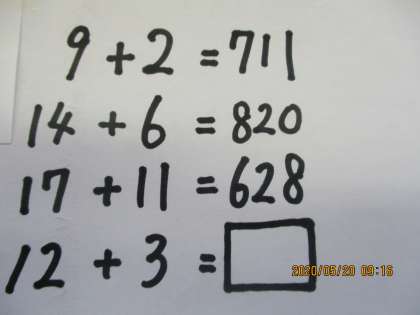 9 + 2 = 711
14 + 6 = 820
17 + 11 = 628
12 + 3 =
2020/05/20 09:16